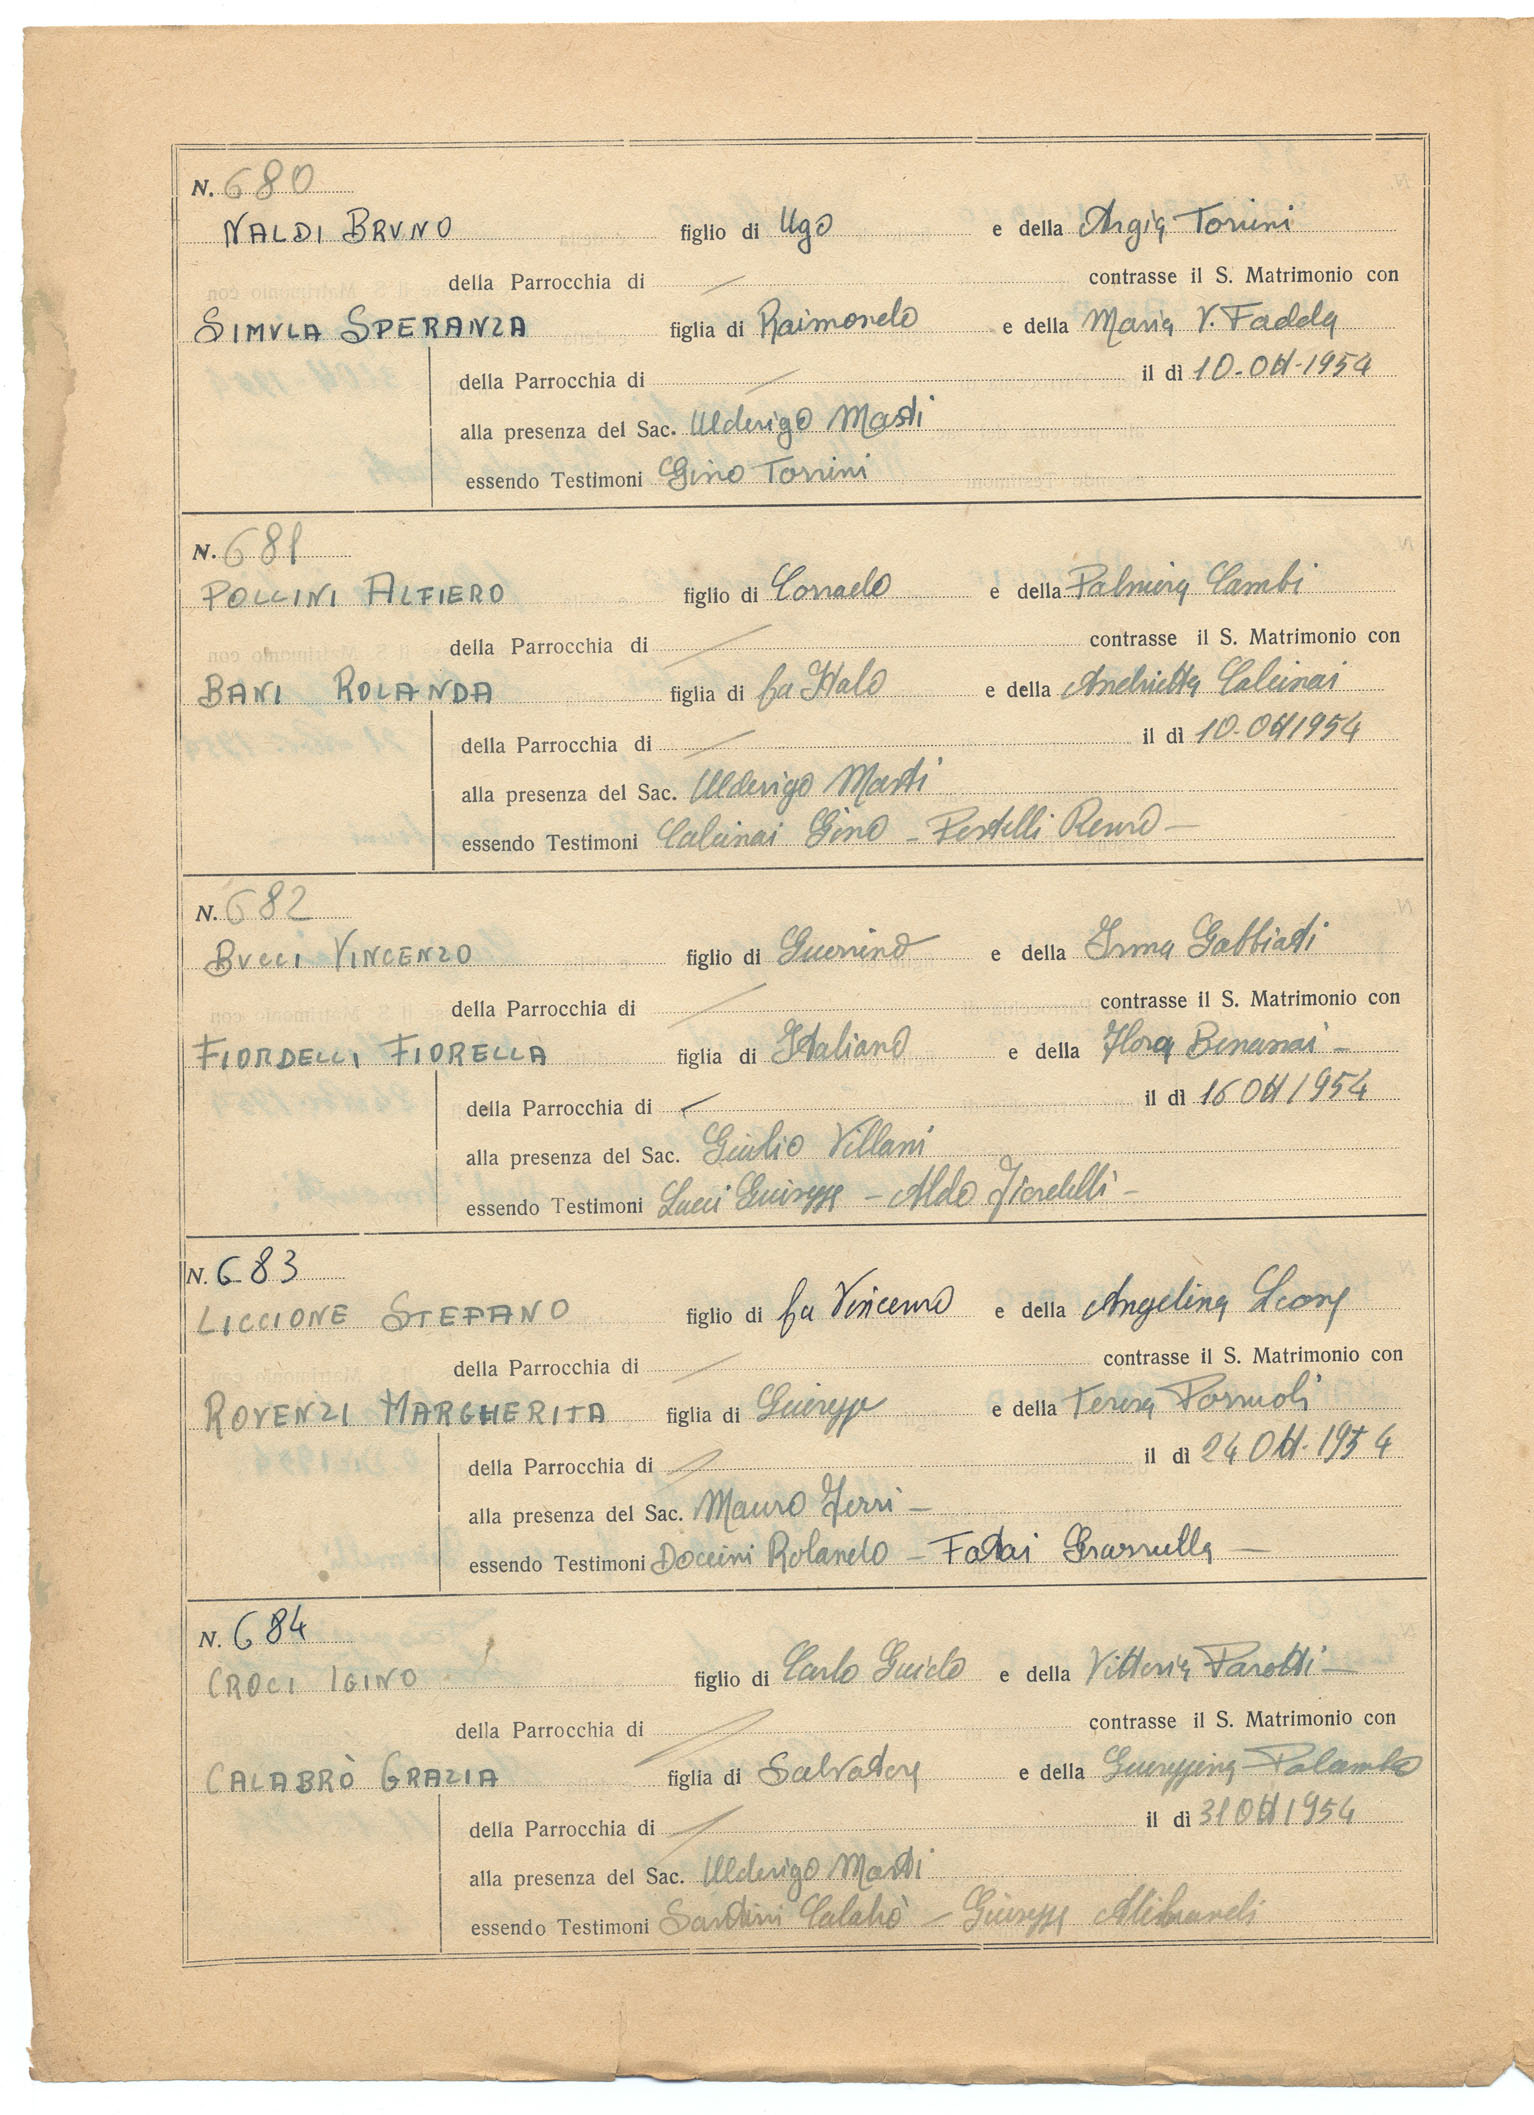 N. 680
NALDI BRUNO figlio di Ugo e della Argia Torrini
della Parrocchia di / contrasse il S. Matrimonio con
SIMULA SPERANZA figlia di Raimondo e della Maria V. Fadda
della Parrocchia di / il dì 10-Ott-1954
alla presenza del Sac. Ulderigo Masti
essendo Testimoni Gino Torrini
N. 681
POLLINI ALFIERO figlio di Corrado e della Palmira Cambi
della Parrocchia di / contrasse il S. Matrimonio con
BANI ROLANDA figlia di fu Italo e della Andrietta Calcinai
della Parrocchia di / il dì 10-Ott 1954
alla presenza del Sac. Ulderigo Masti
essendo Testimoni Calcinai Gino - Pestelli Remo -
N. 682
BUCCI VINCENZO figlio di Guerrino e della Irma Gabbiati
della Parrocchia di / contrasse il S. Matrimonio con
FIORDELLI FIORELLA figlia di Italiano e della Flora
della Parrocchia di il dì 16 Ott 1954
alla presenza del Sac. Giulio Villani
essendo Testimoni Lucci Giuseppe - Aldo Fiordelli -
N. 683
LICCIONE STEFANO figlio di fu Vincenzo e della Angelina Leone
della Parrocchia di / contrasse il S. Matrimonio con
ROVENZI MARGHERITA figlia di Giuseppe e della Teresa
della Parrocchia di / il dì 24 Ott-1954
alla presenza del Sac. Mauro Ferri -
essendo Testimoni Doccini Rolando - Fattai -
N. 684
CROCI IGINO figlio di Carlo Guido e della Vittoria Parotti -
della Parrocchia di / contrasse il S. Matrimonio con
CALABRÒ GRAZIA figlia di Salvatore e della Giuseppina Palamba
della Parrocchia di / il dì 31 Ott 1954
alla presenza del Sac. Ulderigo Masti
essendo Testimoni Santini Calabrò - Giuseppe Alibrandi